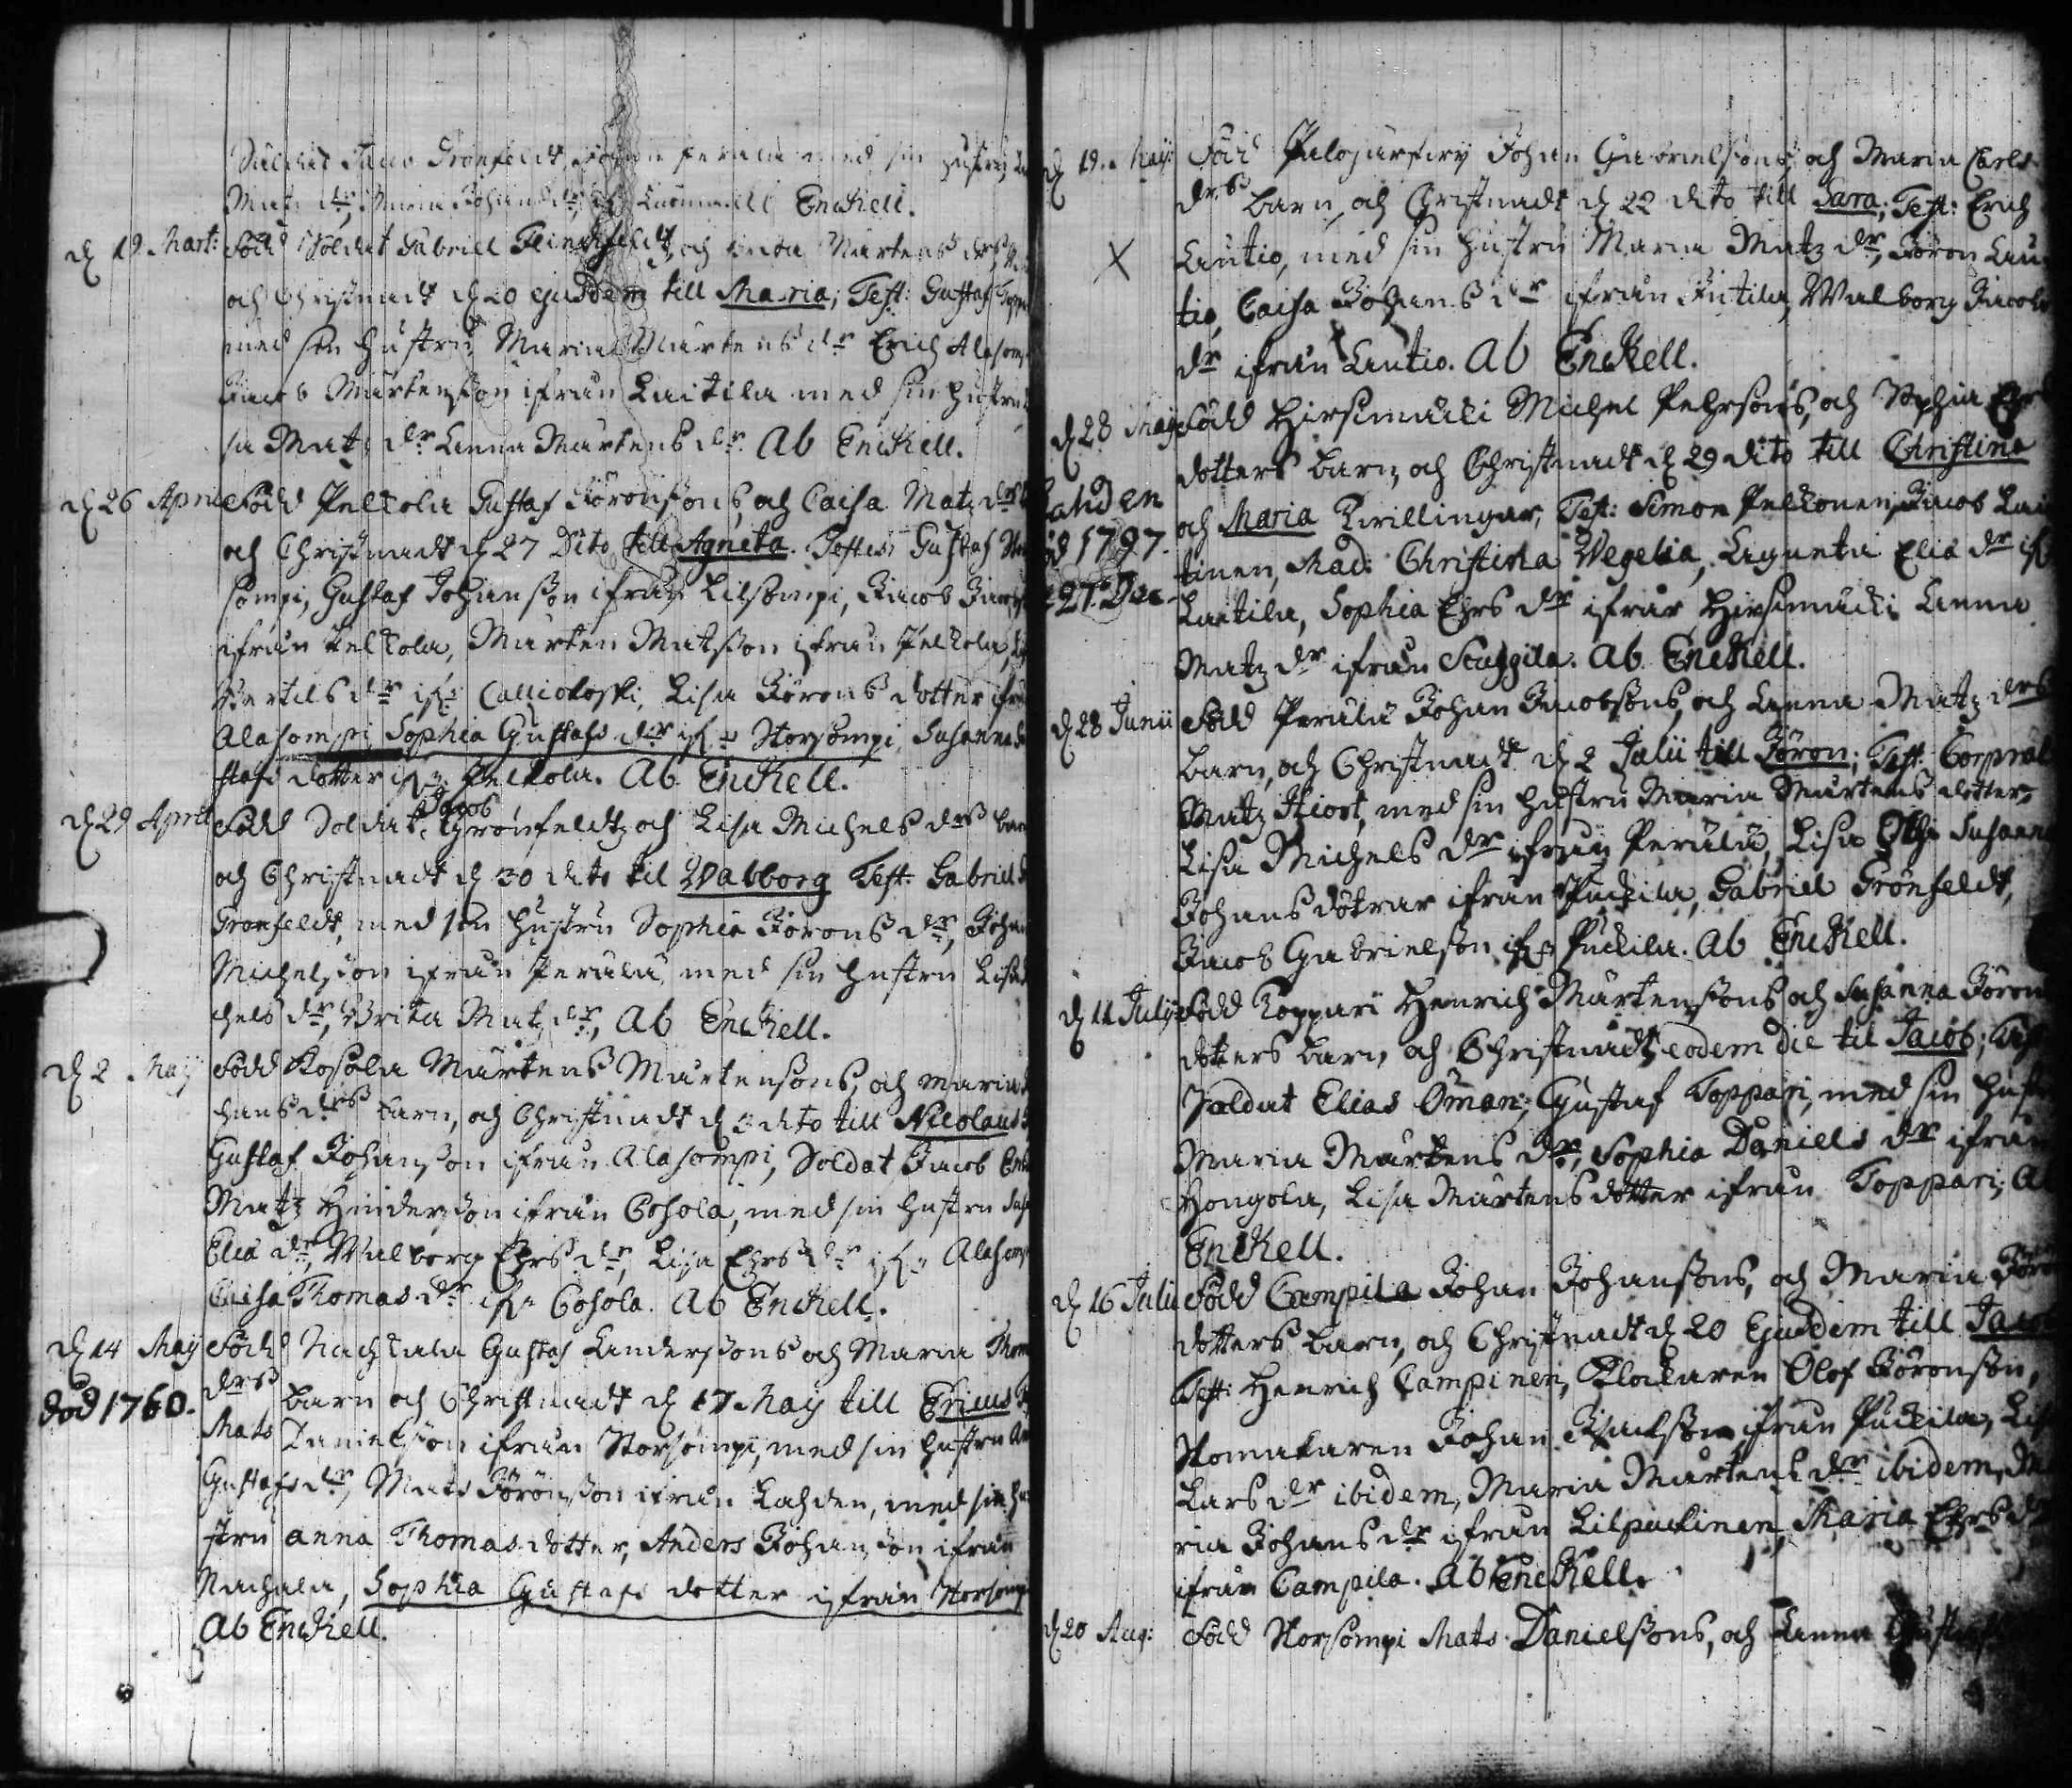 Soldat Jacob Grönfeldt, med sin hustru
Matz dr, Maria Johans dr, Enckell.
d 19 Mart: Född Soldat Gabriell och Brita Mårtens drs
och Christnadt d 20 ejusdem till Maria; Test: Gustaf
med sin hustru Maria Mårtens dr Erich Alasom
Jacob Mårtensson ifrån Laitila med sin hustru
sa Matz dr Anna Mårtens dr. Ab Enckell.
d 26 April Född Pelkola Gustaf Jöransons, och Caisa Matz drs
och Christnadt d 27 Dito till Agneta. Testes: Gustaf
sompi, Gustaf Johansson ifrån Lilsompi, Jacob
ifrån Pelkola, Mårten Matsson ifrån Pelkola,
Bertils dr ifr: Calliokoski, Lisa Jörans dotter ifr
Alasompi Sophia Gustafs dr ifr: Storsompi, Susanna
stafs dotter ifr: Pelkola. Ab Enckell.
d 29 April Född Soldat Jacob Grönfeldtz och Lisa Michels drs bar
och Christnadt d 30 dito til Walborg Test: Gabriel
Grönfeldt, med sin hustru Sophia Jörans dr, Joha
Michelsson ifrån Perälä med sin hustru Lisa
chels dr, Brita Matz dr, Ab Enckell.
d 2 May Född Kosola Mårtens Mårtensons, och Maria
hans drs barn, och Christnadt d 3 dito till Nicolaus
Gustaf Johansson ifrån Alasompi, Soldat Jacob
Matz Hindersson ifrån Cosola, med sin hustru
Eliæ dr, Walborg Ehrs dr, Lisa Ehrs dr ifr: Alasomp
Caisa Thomas dr ifr: Cosola. Ab Enckell.
d 14 May Född Nachkala Gustaf Anderssons och Maria Thom
drs
död 1760. barn och Christnadt d 17 May till Ericus
Mats Danielsson ifrån Storsompi, med sin hustru
Gustafs dr, Mats Jöransson ifrån Lahden, med sin hu
stru Anna Thomas dotter, Anders Johansson ifrån
Nachala, Sophia Gustafs dotter ifrån Storsomp
Ab Enckell.
d 19. May: Född Palojärfwy Johan Gabrielsons, och Maria Carls
drs barn, och Christnadt d 22 dito till Sara; Test: Erich
X Lautio, med sin hustru Maria Matz dr, Jöran Lau
tio, Caisa Johans dr ifrån Jutila, Walborg Jacobs
dr ifrån Lautio. Ab Enckell.
d 28 May Född Hirsimäki Michel Pehrsons, och Sophia Ehrs
dotters barn, och Christnadt d 29 dito till Christina
Lahden
och Maria Twillingar, Test: Simon Pelkonen, Jacob Lai
död 1797.
tinen, Mad: Christina Wegelia, Agneta Eliæ dr ifr
27 Dec.
Laitila, Sophia Ehrs dr ifrån Hirsimäki Anna
Matz dr ifrån Scuggila. Ab Enckell.
d 28 Junii Född Perälä Johan Jacobsons, och Anna Matz drs
barn, och Christnadt d 2 Julii till Jöran; Test: Corpral
Matz Hiort, med sin hustru Maria Mårtens dotter
Lisa Michels dr ifrån Perälä, Lisa Och Susanna
Johans döttrar ifrån Puckila, Gabriel Grönfeldt,
Jacob Gabrielsson ifr: Puckila. Ab Enckell.
d 11 July Född Toppari Henrich Mårtensons och Susanna Jöran
dotters barn, och Christnadt eodem die til Jacob; Test
Soldat Elias Öman; Gustaf Toppari, med sin hust
Maria Mårtens dr, Sophia Daniels dr ifrån
Hongola, Lisa Mårtens dotter ifrån Toppari; Ab
Enckell.
d 16 Julii Född Campila Johan Johansons, och Maria Jöran
dotters barn, och Christnadt d 20 Ejusdem till Jacob
Test: Henrich Campinen, Klockaren Olof Jöransson,
Skomakaren Johan Isacksson ifrån Puckila, Lis
Lars dr ibidem, Maria Mårtens dr ibidem, Ma
ria Johans dr ifrån Lilpuckinen, Maria Ehrs dr
ifrån Campila. Ab Enckell.
d 20 Aug: Född Storsompi Mats Danielsons, och Anna Gustafs